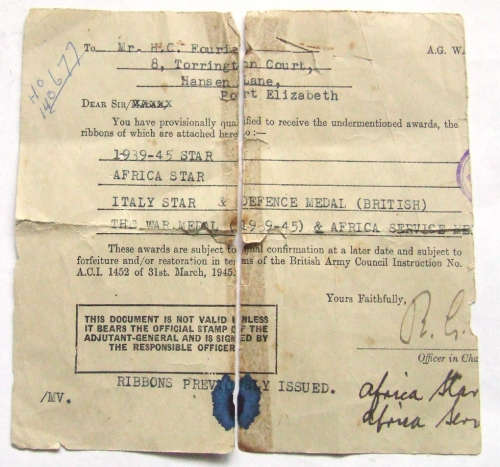 A.G. W.
To Mr. H.C. Fourie
8, Torrington Court,
Hansen Lane,
Port Elizabeth
HO
140677
DEAR SIR/
You have provisionally qualified to receive the undermentioned awards, the
ribbons of which are attached hereto :—
1939-45 STAR
AFRICA STAR
ITALY STAR & DEFENCE MEDAL (BRITISH)
THE WAR MEDAL (1939-45) & AFRICA SERVICE ME
These awards are subject to final confirmation at a later date and subject to
forfeiture and/or restoration in terms of the British Army Council Instruction No.
A.C.I. 1452 of 31st. March, 1945.
Yours Faithfully,
R. G.
Officer in Cha
THIS DOCUMENT IS NOT VALID UNLESS
IT BEARS THE OFFICIAL STAMP OF THE
ADJUTANT-GENERAL AND IS SIGNED BY
THE RESPONSIBLE OFFICER
RIBBONS PREVIOUSLY ISSUED.
Africa Star
Africa Serv
/MV.